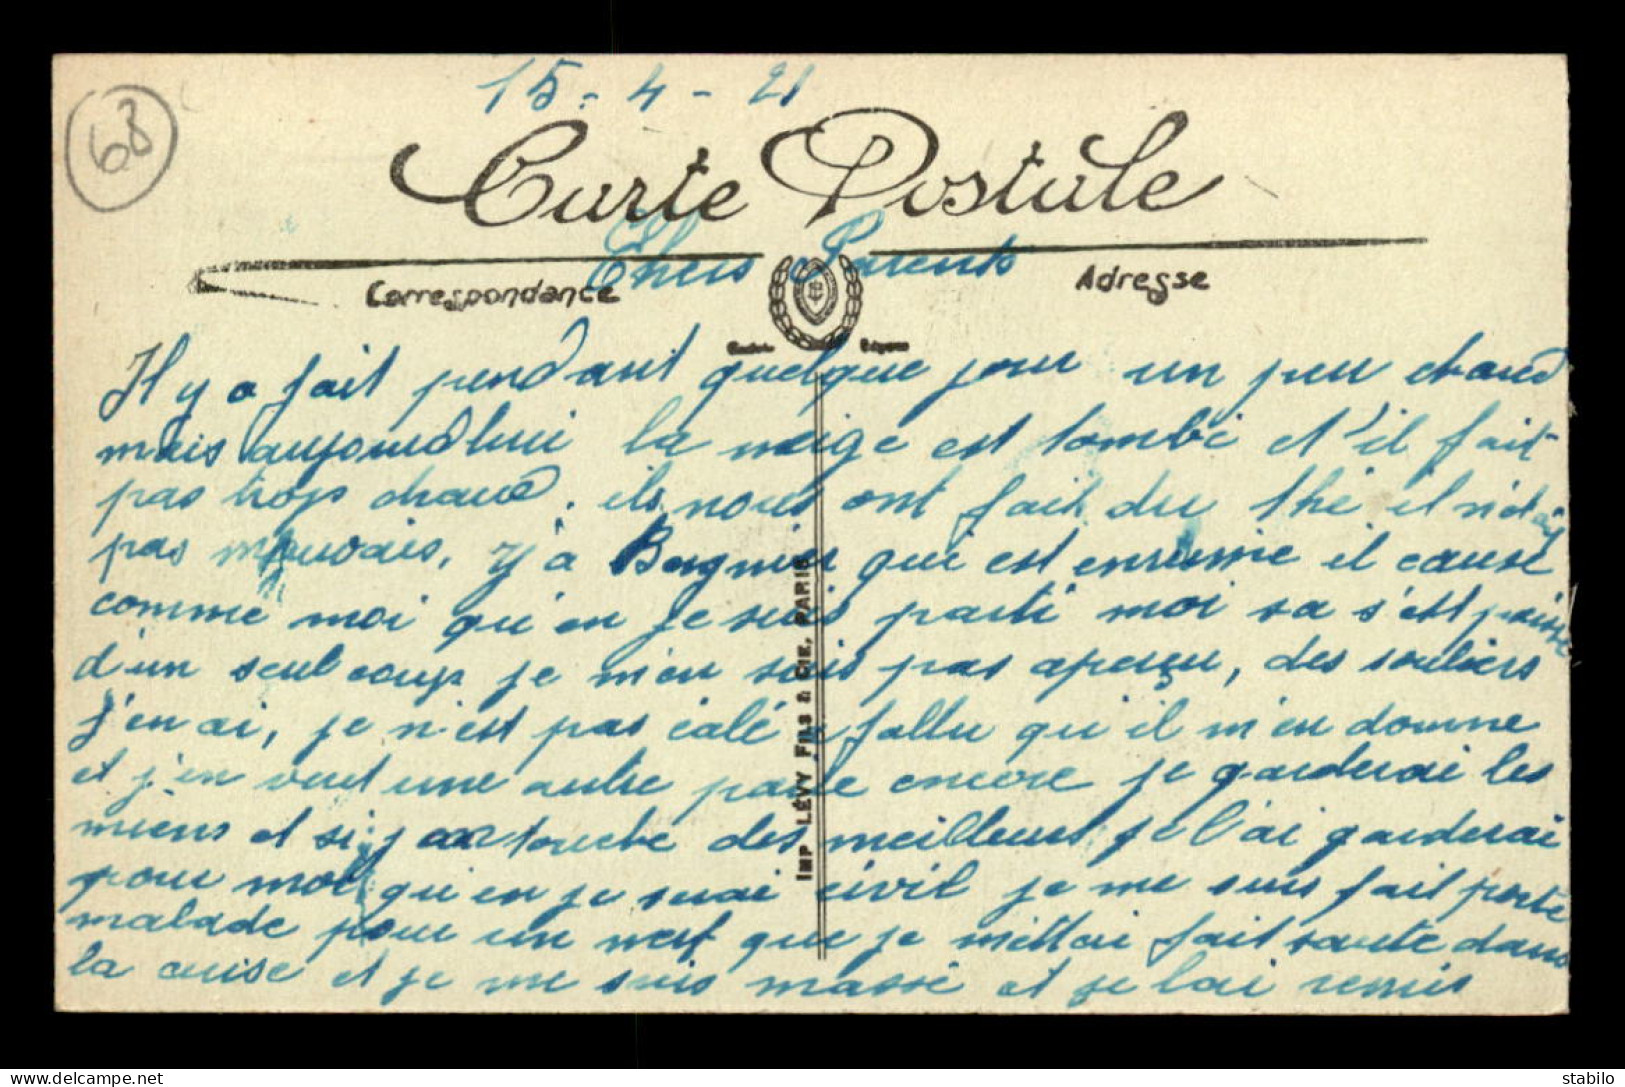 15 - 4 - 21
68
Carte Postale
Chers Parents
Correspondance
Adresse
Il y a fait pendant quelque jour un peu chaud
mais aujourdhui la neige est tombé et il fait
pas trop chaud. ils nous ont fait du thé il n'
pas mauvais, y'a qui est enrumé il cause
comme moi qu'en je suis parti moi sa s'est passé
d'un seul coup je m'en suis pas aperçu, des souliers
j'en ai, je n'est pas calé fallu qu'il m'en domne
et j'en veut une autre paire encore je garderai les
miens et si j touche des meilleurs je l'ai garderai
pour moi qu'en je serai civil je me suis fait porté
malade pour un nerf que je m'ettai fait sauté dans
la cuise et je me suis massé et je lai remis
IMP LÉVY FILS & CIE, PARIS
stabilo